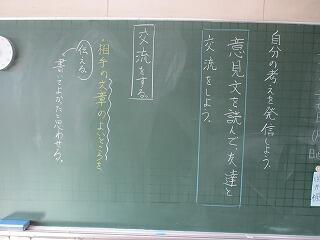 自分の考えを発信しよう。
意見文を読んで、友達と
交流をしよう。
交流をする。
・相手の文章のよいところを、
伝える。
書いてよかったと思わせる。